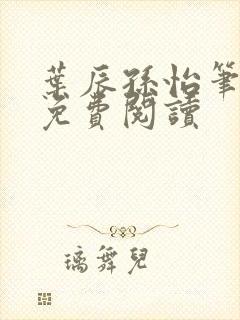 葉辰孫怡筆
免費閱讀
璃舞兒